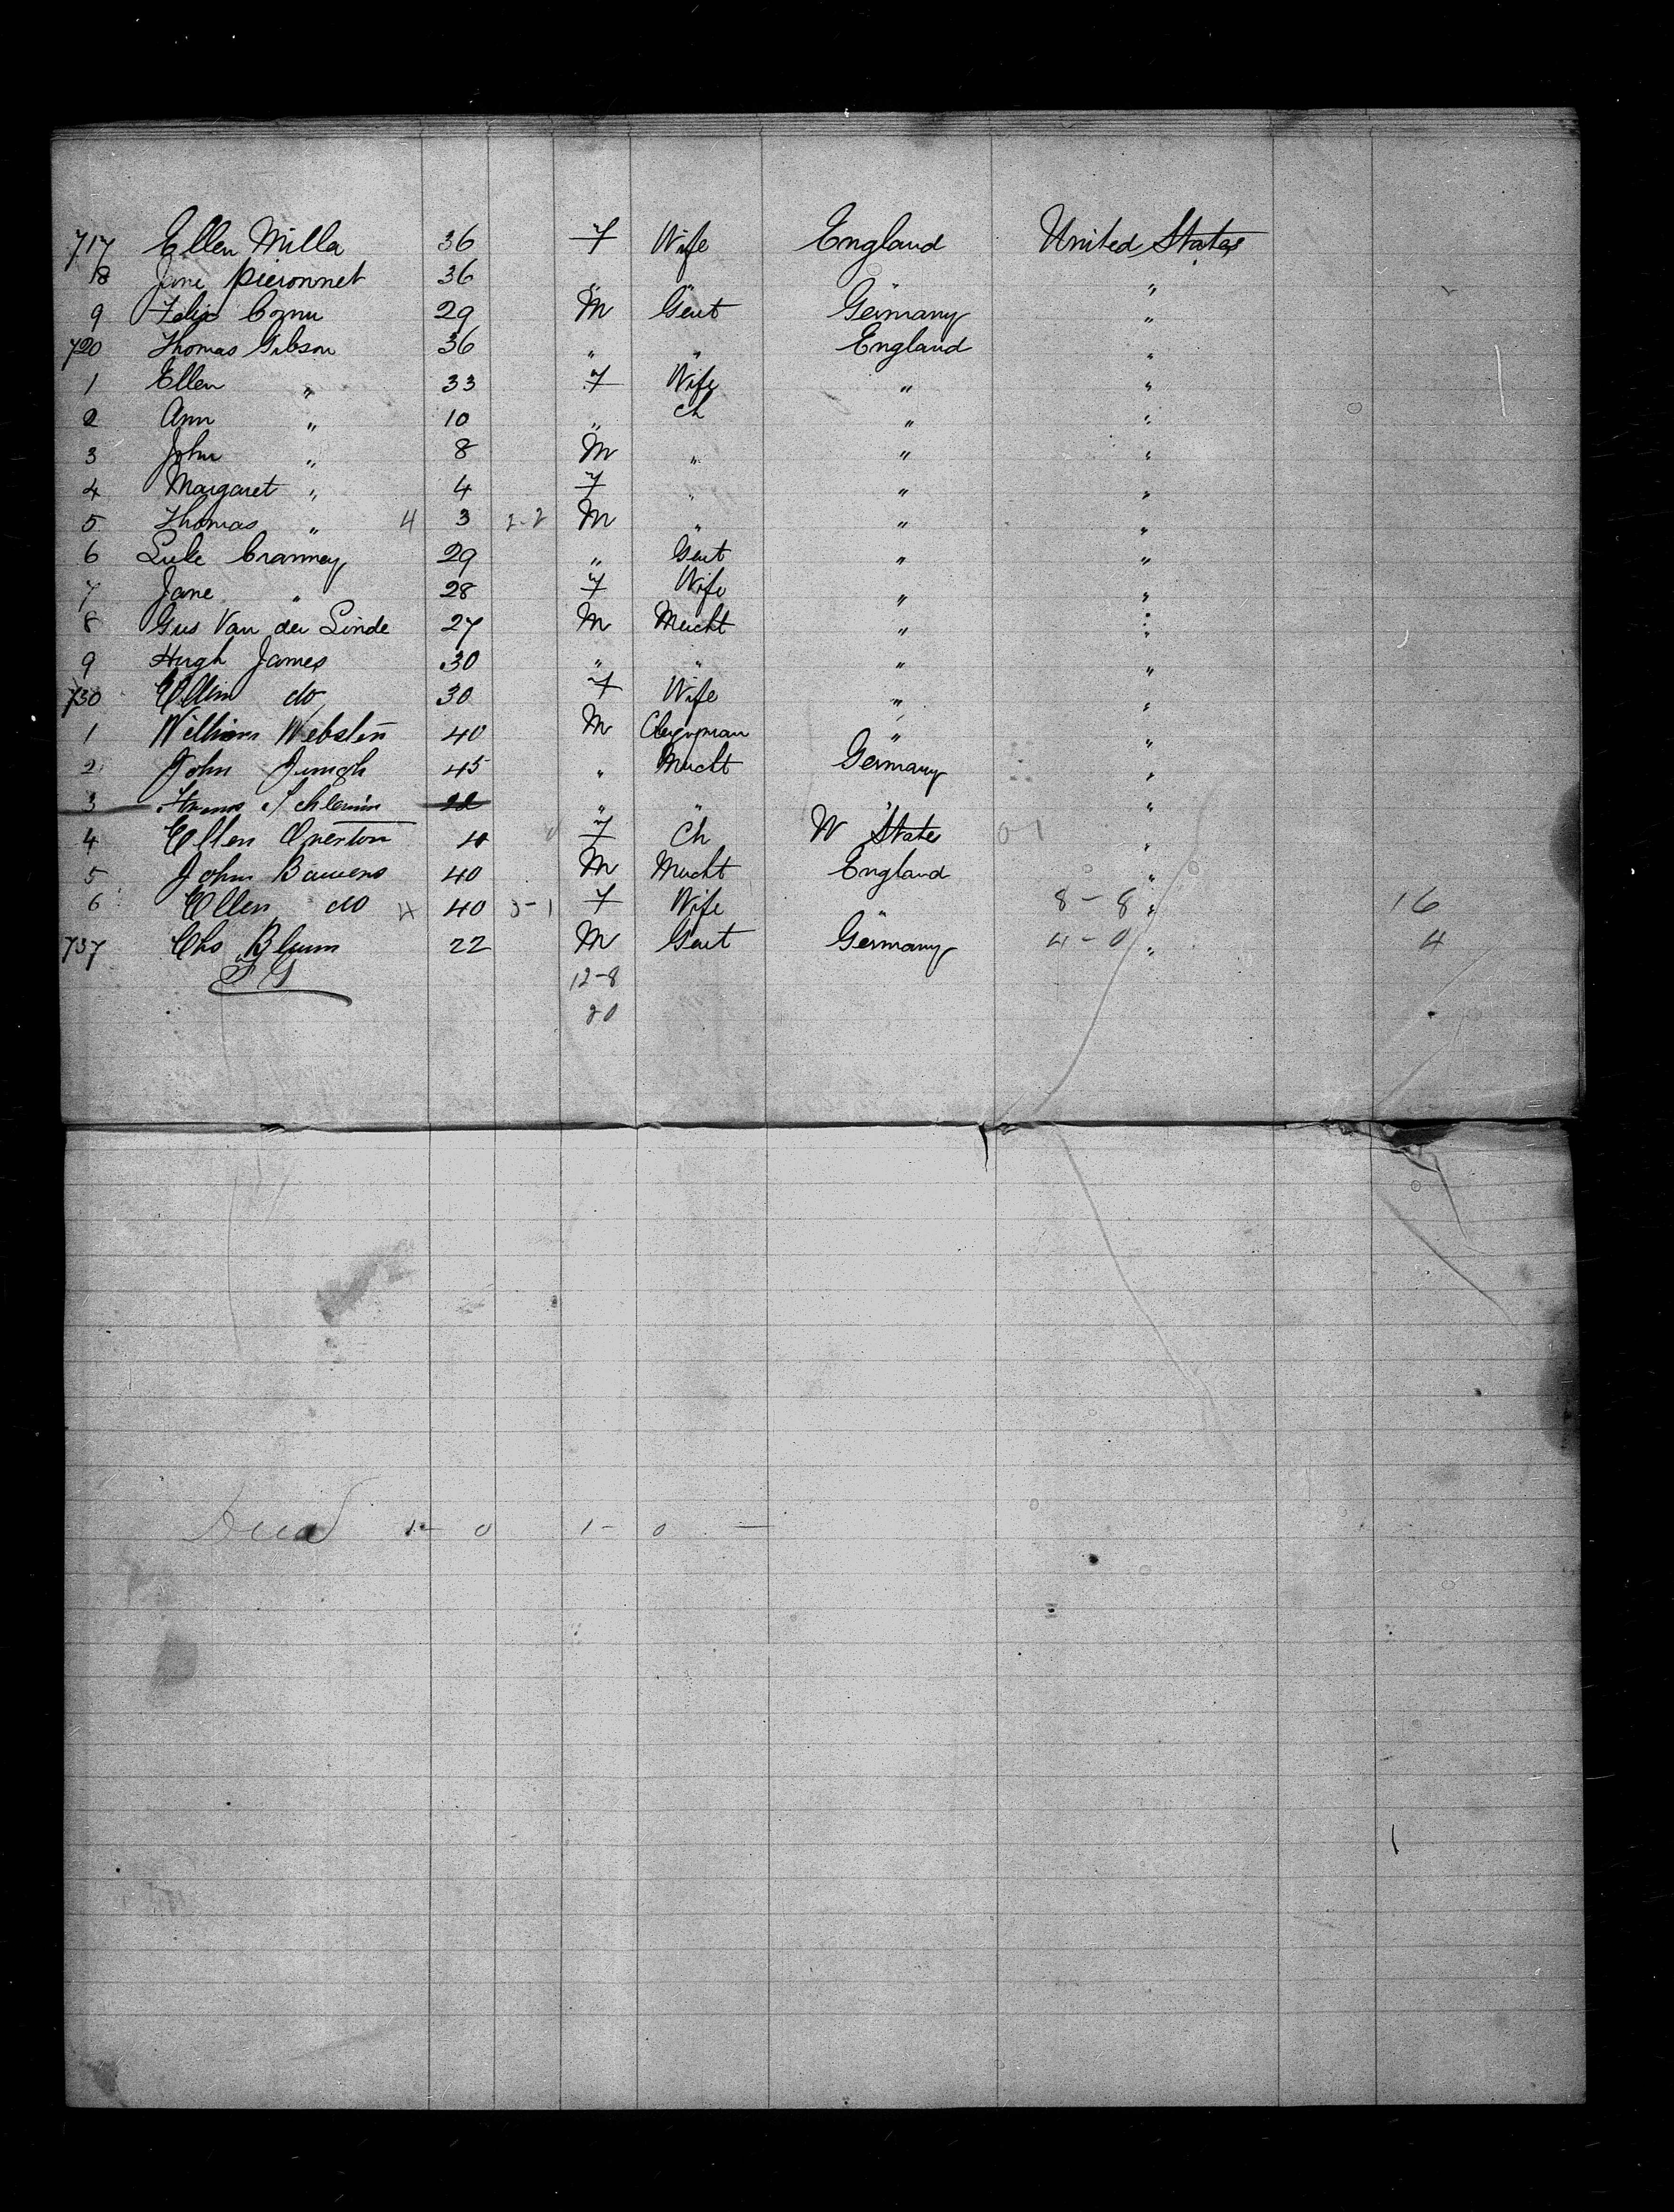 717 Ellen Milla 36 F Wife England United States
18 Jane Pieronnet 36 " " " "
9 Felix Cornu 29 M Gent Germany "
720 Thomas Gibson 36 " " England "
1 Ellen " 33 F Wife " "
2 Ann " 10 " Ch " "
3 John " 8 M " " "
4 Margaret " 4 F " " "
5 Thomas " 4 3 2-2 M " " "
6 Luke Cranney 29 " Gent " "
7 Jane " 28 F Wife " "
8 Gus Van der Linde 27 M Mercht " "
9 Hugh James 30 " " " "
730 Ellin do 30 F Wife " "
1 William Webster 40 M Clergyman " "
2 John 45 " Mercht Germany "
3 " " " "
4 Ellen Overton F Ch States 0-1 "
5 John Bauwens 40 M Mercht England "
6 Ellen do 4 40 3-1 F Wife " 8-8 " 16
737 Chs Blum 22 M Gent Germany 4-0 " 4
12-8
20
Dead 1- 0 1- 0 —